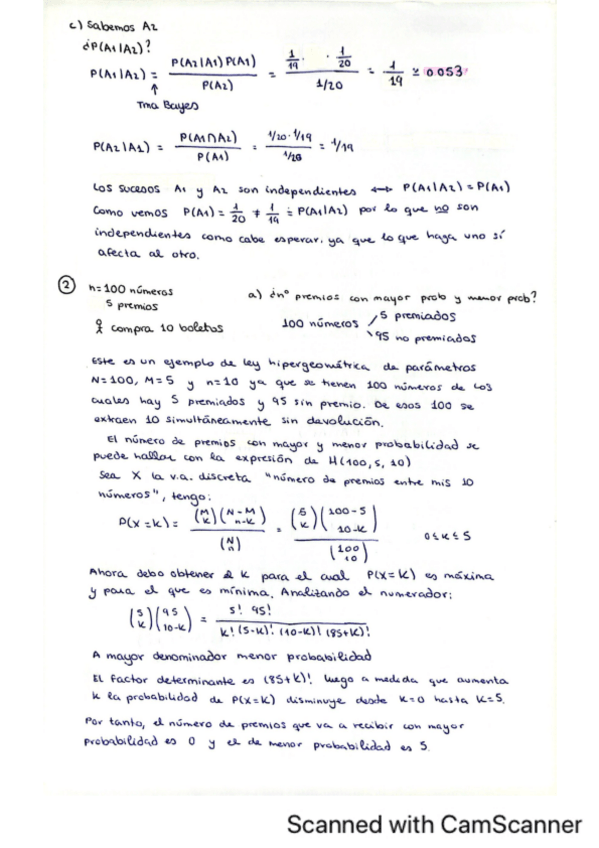 c) Sabemos A2
¿P(A1|A2)?
P(A1|A2) = P(A2|A1) P(A1) / P(A2) = 1/19 · 1/20 / 1/20 = 1/19 ≃ 0'053
↑
Tma Bayes
P(A2|A1) = P(A1∩A2) / P(A1) = 1/20 · 1/19 / 1/20 = 1/19
Los sucesos A1 y A2 son independientes ⟷ P(A1|A2) = P(A1)
Como vemos P(A1) = 1/20 ≠ 1/19 = P(A1|A2) por lo que no son
independientes como cabe esperar, ya que lo que haga uno sí
afecta al otro.
② n=100 números
5 premios
compra 10 boletos
a) ¿nº premios con mayor prob y menor prob?
100 números
5 premiados
95 no premiados
Este es un ejemplo de ley hipergeométrica de parámetros
N=100, M=5 y n=10 ya que se tienen 100 números de los
cuales hay 5 premiados y 95 sin premio. De esos 100 se
extraen 10 simultáneamente sin devolución.
El número de premios con mayor y menor probabilidad se
puede hallar con la expresión de H(100, 5, 10)
Sea X la v.a. discreta "número de premios entre mis 10
números", tengo:
P(X=k) = (M k)(N-M n-k) / (N n) = (5 k)(100-5 10-k) / (100 10) 0≤k≤5
Ahora debo obtener k para el cual P(X=k) es máxima
y para el que es mínima. Analizando el numerador:
(5 k)(95 10-k) = 5! 95! / k! (5-k)! (10-k)! (85+k)!
A mayor denominador menor probabilidad
El factor determinante es (85+k)! luego a medida que aumenta
k la probabilidad de P(X=k) disminuye desde k=0 hasta k=5.
Por tanto, el número de premios que va a recibir con mayor
probabilidad es 0 y el de menor probabilidad es 5.
Scanned with CamScanner